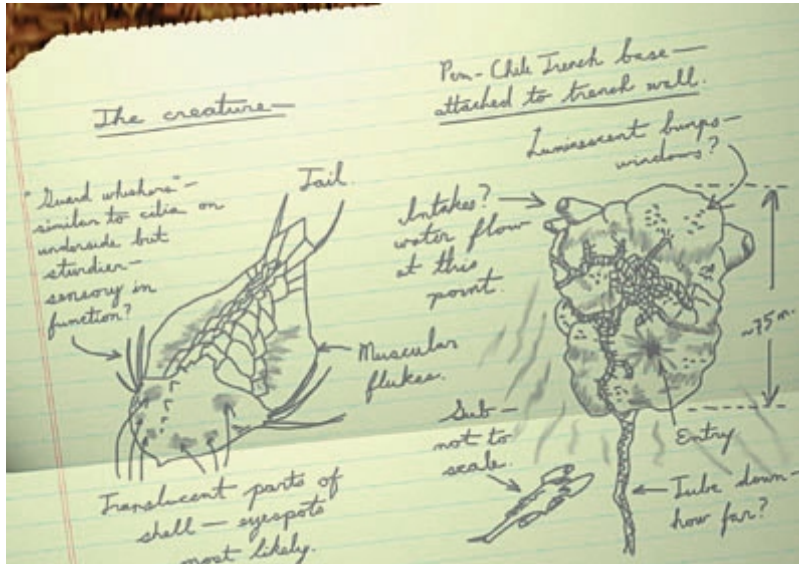 The creature—
"Guard whiskers"—
similar to cilia on
underside but
sturdier—
sensory in
function?
Tail
Muscular
flukes.
Translucent parts of
shell — eyespots
most likely.
Peru-Chile Trench base—
attached to trench wall.
Luminescent bumps—
windows?
Intakes?
water flow
at this
point
~75 m.
Sub—
not to
scale.
Entry
Tube down—
how far?